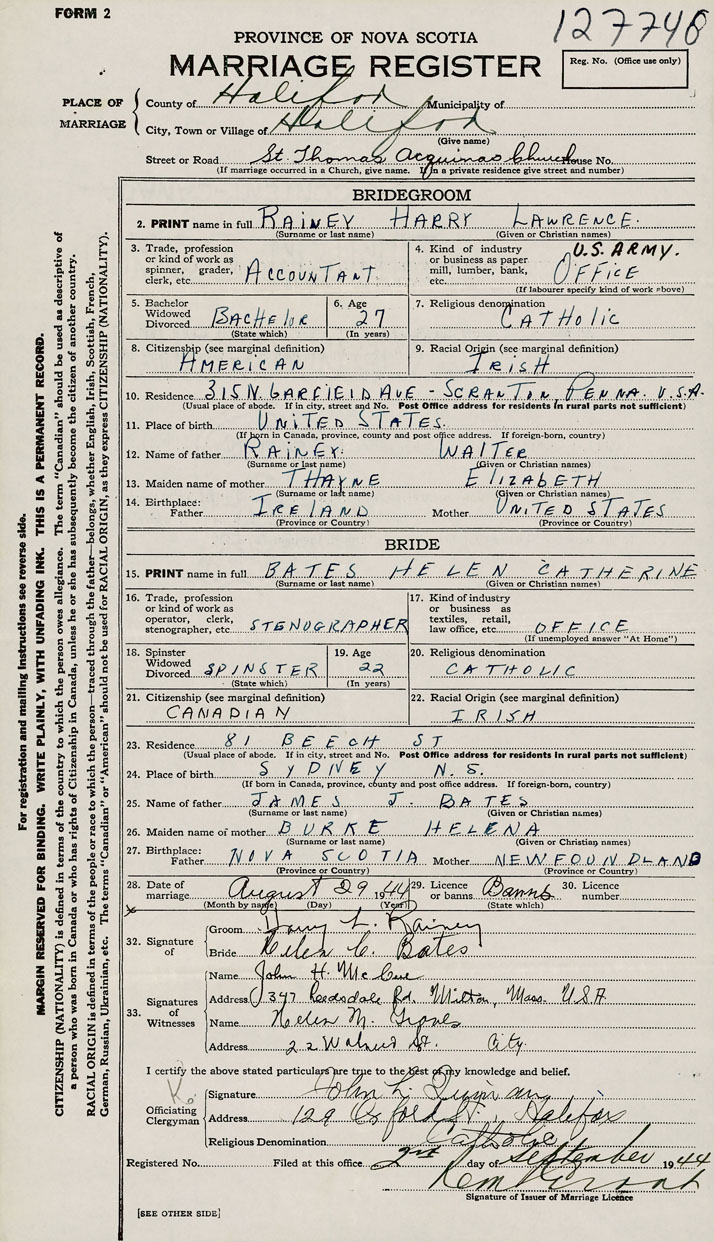 FORM 2
127740
PROVINCE OF NOVA SCOTIA
MARRIAGE REGISTER
Reg. No. (Office use only)
PLACE OF MARRIAGE
County of Halifax Municipality of
City, Town or Village of Halifax
(Give name)
Street or Road St. Thomas Acquinas Church House No.
(If marriage occurred in a Church, give name. If in a private residence give street and number)
BRIDEGROOM
2. PRINT name in full RAINEY HARRY LAWRENCE.
(Surname or last name) (Given or Christian names)
3. Trade, profession or kind of work as spinner, grader, clerk, etc. ACCOUNTANT
4. Kind of industry or business as paper mill, lumber, bank, etc. U.S. ARMY. OFFICE
(If labourer specify kind of work above)
5. Bachelor Widowed Divorced BACHELOR
(State which)
6. Age 27
(In years)
7. Religious denomination CATHOLIC
8. Citizenship (see marginal definition) AMERICAN
9. Racial Origin (see marginal definition) IRISH
10. Residence 315 N. GARFIELD AVE - SCRANTON, PENNA. U.S.A.
(Usual place of abode. If in city, street and No. Post Office address for residents in rural parts not sufficient)
11. Place of birth UNITED STATES.
(If born in Canada, province, county and post office address. If foreign-born, country)
12. Name of father RAINEY WALTER
(Surname or last name) (Given or Christian names)
13. Maiden name of mother THAYNE ELIZABETH
(Surname or last name) (Given or Christian names)
14. Birthplace: Father IRELAND Mother UNITED STATES
(Province or Country) (Province or Country)
BRIDE
15. PRINT name in full BATES HELEN CATHERINE
(Surname or last name) (Given or Christian names)
16. Trade, profession or kind of work as operator, clerk, stenographer, etc STENOGRAPHER
17. Kind of industry or business as textiles, retail, law office, etc. OFFICE
(If unemployed answer "At Home")
18. Spinster Widowed Divorced SPINSTER
(State which)
19. Age 22
(In years)
20. Religious denomination CATHOLIC
21. Citizenship (see marginal definition) CANADIAN
22. Racial Origin (see marginal definition) IRISH
23. Residence 81 BEECH ST
(Usual place of abode. If in city, street and No. Post Office address for residents in rural parts not sufficient)
24. Place of birth SYDNEY N.S.
(If born in Canada, province, county and post office address. If foreign-born, country)
25. Name of father JAMES J. BATES
(Surname or last name) (Given or Christian names)
26. Maiden name of mother BURKE HELENA
(Surname or last name) (Given or Christian names)
27. Birthplace: Father NOVA SCOTIA Mother NEWFOUNDLAND
(Province or Country) (Province or Country)
28. Date of marriage August 29 1944
(Month by name) (Day) (Year)
29. Licence or banns Banns
(State which)
30. Licence number
32. Signature of
Groom Harry L. Rainey
Bride Helen C. Bates
33. Signatures of Witnesses
Name John H. McCue
Address 347 Reedsdale Rd. Milton, Mass. U.S.A
Name Helen M. Groves
Address 22 Walnut St. City.
I certify the above stated particulars are true to the best of my knowledge and belief.
Officiating Clergyman
Signature John L.
Address 129 Oxford St., Halifax
Religious Denomination Catholic
Registered No. Filed at this office 2nd day of September 1944
Signature of Issuer of Marriage Licence
[SEE OTHER SIDE]
For registration and mailing instructions see reverse side.
MARGIN RESERVED FOR BINDING. WRITE PLAINLY, WITH UNFADING INK. THIS IS A PERMANENT RECORD.
CITIZENSHIP (NATIONALITY) is defined in terms of the country to which the person owes allegiance. The term "Canadian" should be used as descriptive of
a person who was born in Canada or who has rights of Citizenship in Canada, unless he or she has subsequently become the citizen of another country.
RACIAL ORIGIN is defined in terms of the people or race to which the person—traced through the father—belongs, whether English, Irish, Scottish, French,
German, Russian, Ukrainian, etc. The terms "Canadian" or "American" should not be used for RACIAL ORIGIN, as they express CITIZENSHIP (NATIONALITY).